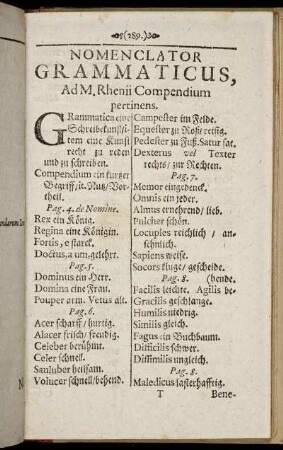 (289.)
NOMENCLATOR
GRAMMATICUS,
Ad M. Rhenii Compendium
pertinens.
GRammatica eine
Schreibekunst/it-
tem eine Kunst
recht zu reden
und zu schreiben.
Compendium ein kurtzer
Begriff/it. Nutz/Vor-
theil.
Pag. 4. de Nomine.
Rex ein König.
Regina eine Königin.
Fortis, e starck.
Doctus, a um, gelehrt.
Pag. 5.
Dominus ein Herr.
Domina eine Frau.
Pouper arm. Vetus alt.
Pag. 6.
Acer scharff/hurtig.
Alacer frisch/freudig.
Celeber berühmt.
Celer schnell.
Saluber heilsam.
Volucer schnell/behend.
Campester im Felde.
Equester zu Roß/reissig.
Pedester zu Fuß. Satur sat.
Dexterus vel Texter
rechts/zur Rechten.
Pag. 7.
Memor eingedenck.
Omnis ein jeder.
Almus ernehrend/lieb.
Pulcher schön.
Locuples reichlich/an-
sehnlich.
Sapiens weise.
Socors kluge/gescheide.
Pag. 8. (hende.
Facilis leichte. Agilis be-
Gracilis geschlange.
Humilis niedrig.
Similis gleich.
Fagus ein Buchbaum.
Difficilis schwer.
Dissimilis ungleich.
Pag. 8.
Maledicus lasterhafftig.
T Bene-